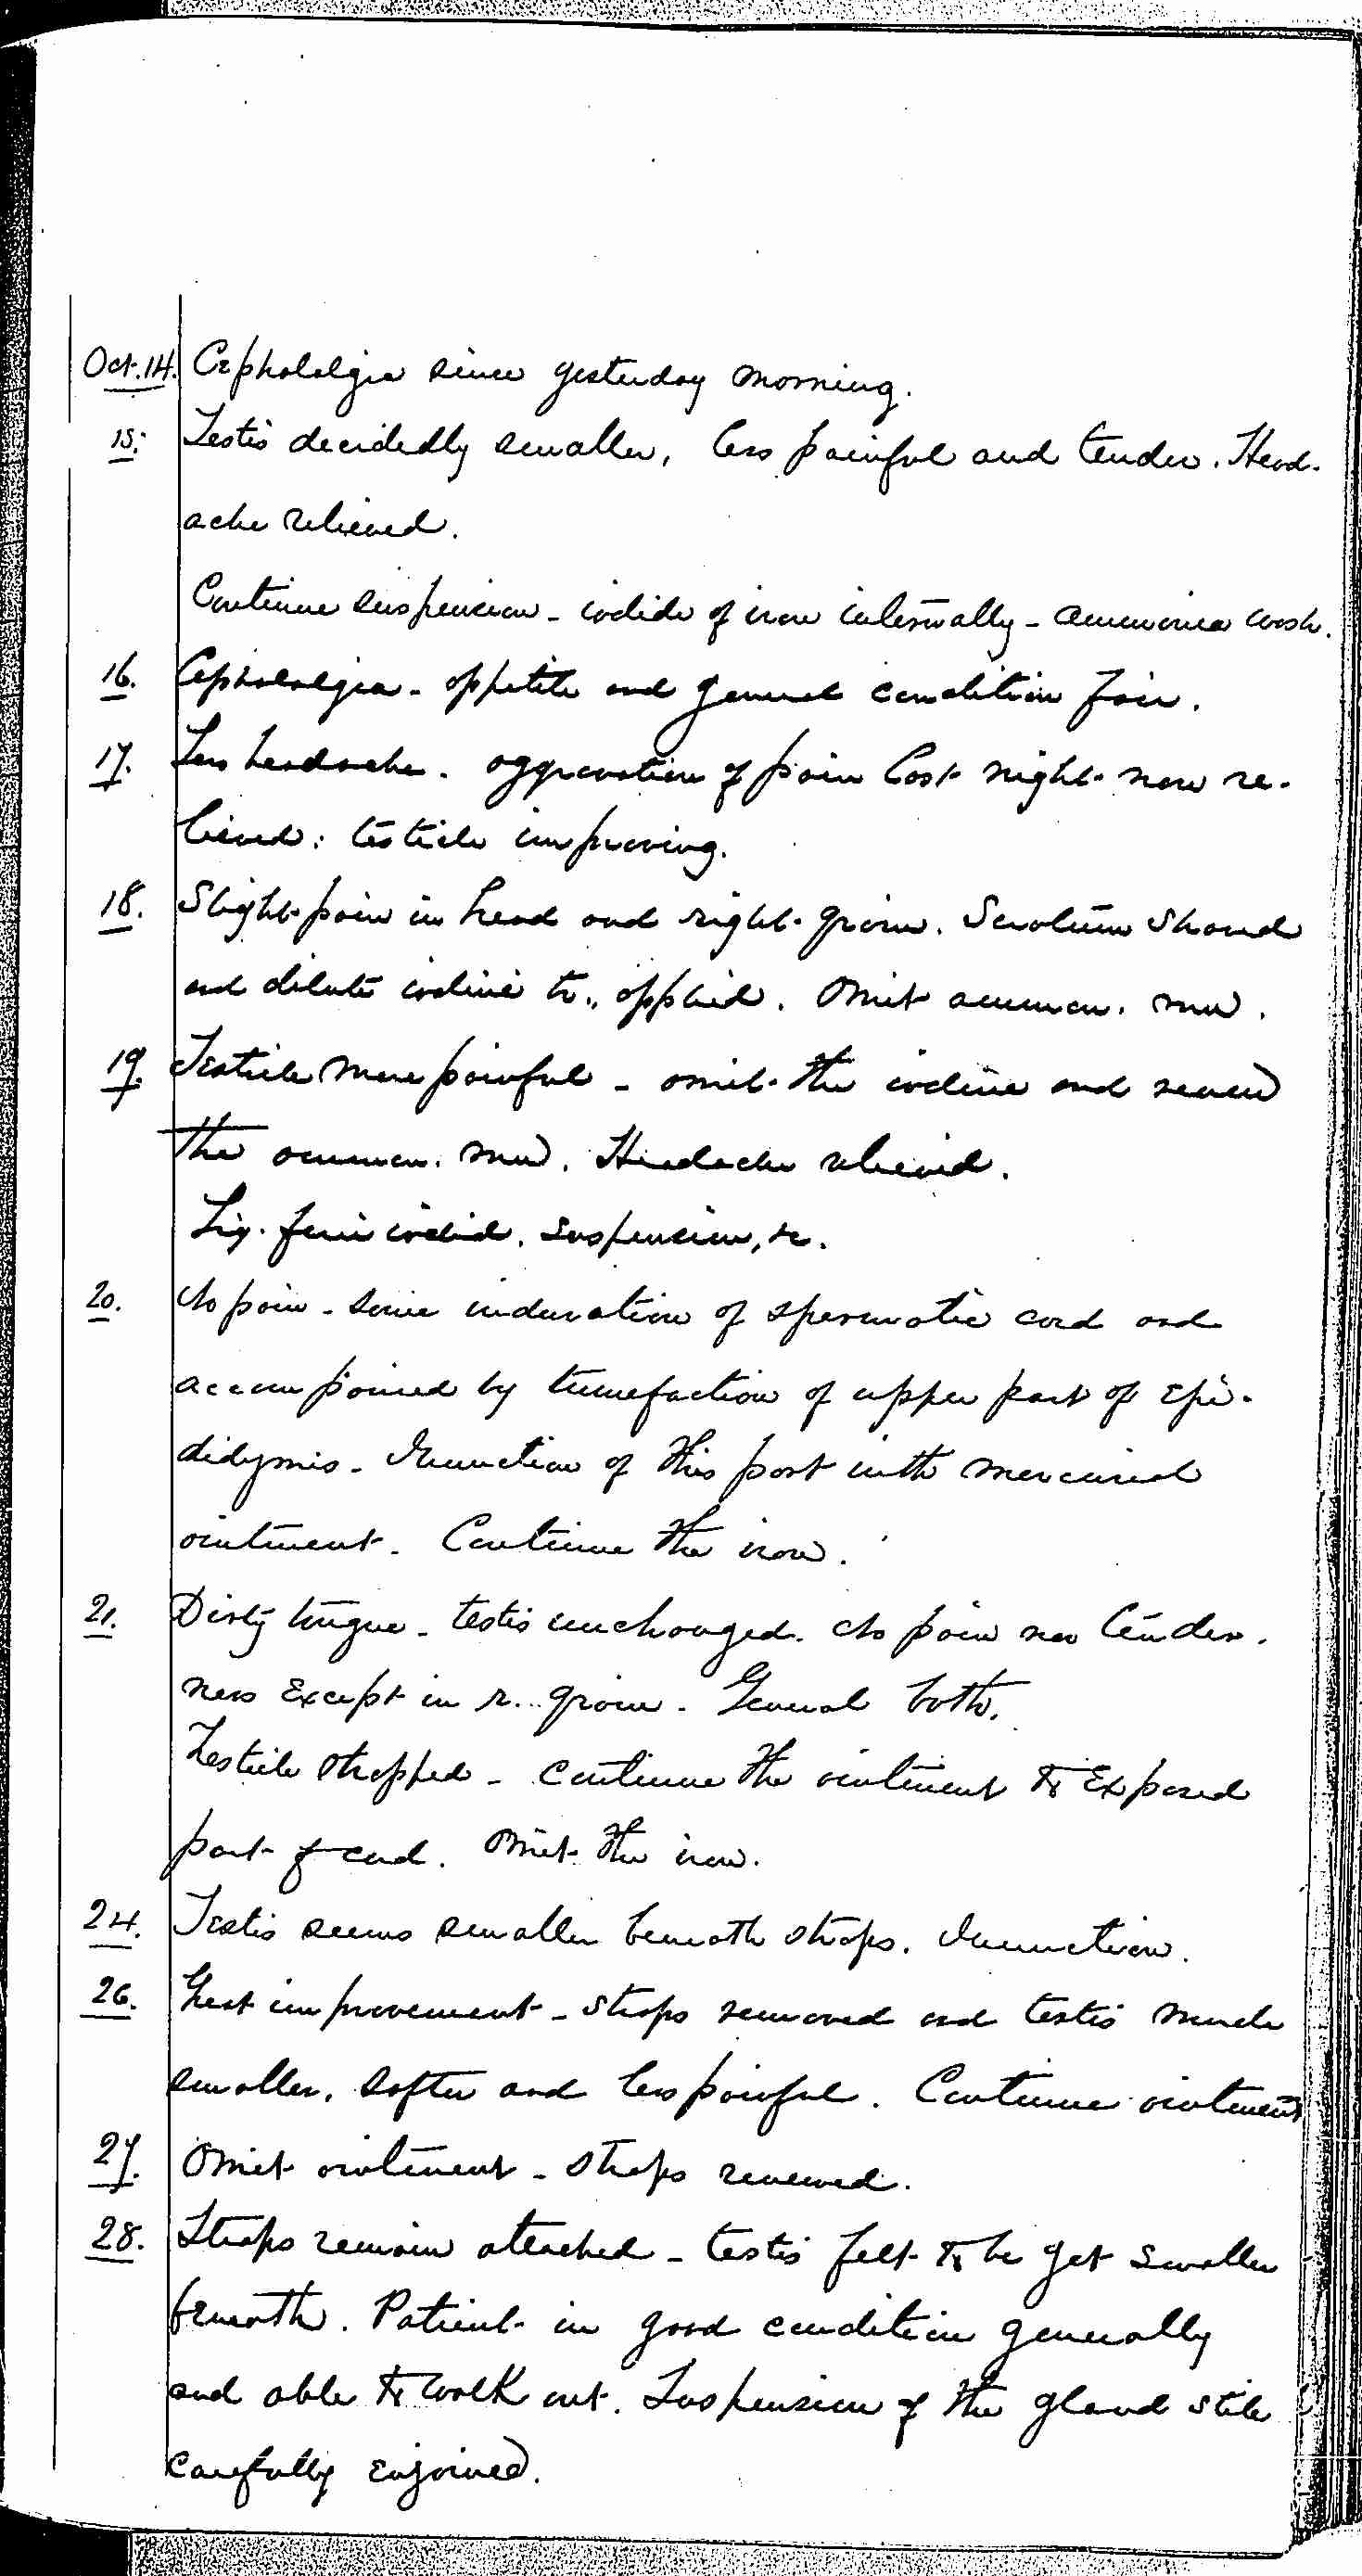 Oct. 14. Cephalalgia since yesterday morning.
15. Testis decidedly smaller, less painful and tender. Head-
ache relieved.
Continue suspension - iodide of iron internally - ammonia wash.
16. Cephalalgia - appetite and general condition fair.
17. Less headache. aggravation of pain last night now re-
lieved: testicle improving.
18. Slight pain in head and right groin. Scrotum shaved
and dilute iodine tr., applied. Omit ammon. mur.
19. Testicle more painful - omit the iodine and renew
the ammon. mur. Headache relieved.
Liq. ferri iodid. suspension, &c.
20. No pain - some induration of spermatic cord and
accompanied by tumefaction of upper part of epi-
didymis. Inunction of this part with mercurial
ointment. Continue the iron.
21. Dirty tongue - testis unchanged. No pain nor tender-
ness except in r. groin. General bath.
Testicle strapped - continue the ointment to exposed
part of cord. Omit the iron.
24. Testis seems smaller beneath straps. Inunction.
26. Great improvement - straps removed and testis much
smaller, softer and less painful. Continue ointment
27. Omit ointment - straps renewed.
28. Straps remain attached - testis felt to be yet smaller
beneath. Patient in good condition generally
and able to walk out. Suspension of the gland still
carefully enjoined.